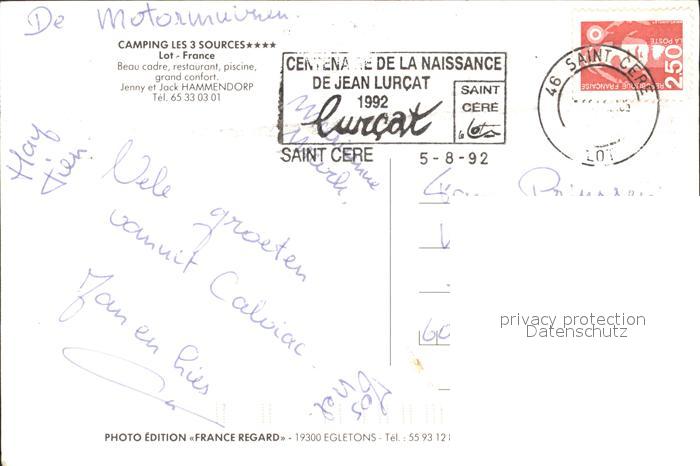 De
CAMPING LES 3 SOURCES★★★★
Lot - France
Beau cadre, restaurant, piscine,
grand confort.
Jenny et Jack HAMMENDORP
Tél. 65 33 03 01
CENTENAIRE DE LA NAISSANCE
DE JEAN LURÇAT
1992
lurçat
SAINT
CÉRÉ
Lot
SAINT CERE
5-8-92
46 SAINT CERE
LOT
LA POSTE
2,50
REPUBLIQUE FRANÇAISE
Marianne
Vele groeten
vanuit Calviac
Jan en Lies
60
privacy protection
Datenschutz
PHOTO ÉDITION «FRANCE REGARD» - 19300 EGLETONS - Tél. : 55 93 12